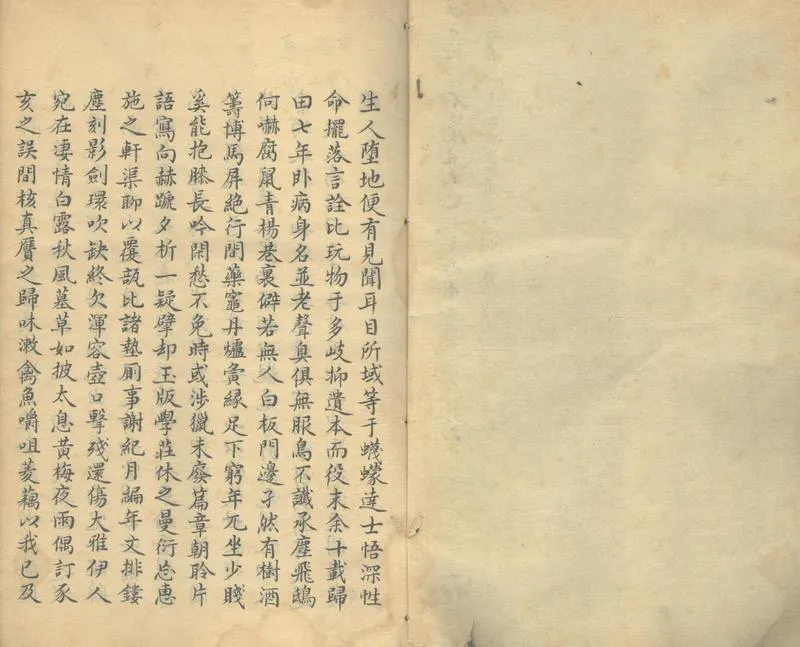 生人墮地便有見聞耳目所域等于蠛蠓達士悟深性
命擺落言詮比玩物于多歧抑遺本而役末余十載歸
田七年卧病身名並老聲臭俱無服鳥不讖承塵飛鴟
何嚇腐鼠青楊巷裏僻若無人白板門邊孑然有樹酒
籌博馬屏絶行間藥竈丹爐夤緣足下窮年兀坐少賤
奚能抱膝長吟閑愁不免時或涉獵未廢篇章朝聆片
語寫向赫蹏夕析一疑擘却玉版學莊休之曼衍忩惠
施之軒渠聊以覆瓿比諸墊廁事謝紀月編年文排鏤
塵刻影劍環吹缺終欠渾容壺口擊殘還傷大雅伊人
宛在淒情白露秋風墓草如披太息黃梅夜雨偶訂豕
亥之誤間核真贗之歸味漱禽魚嚼咀菱藕以我已及